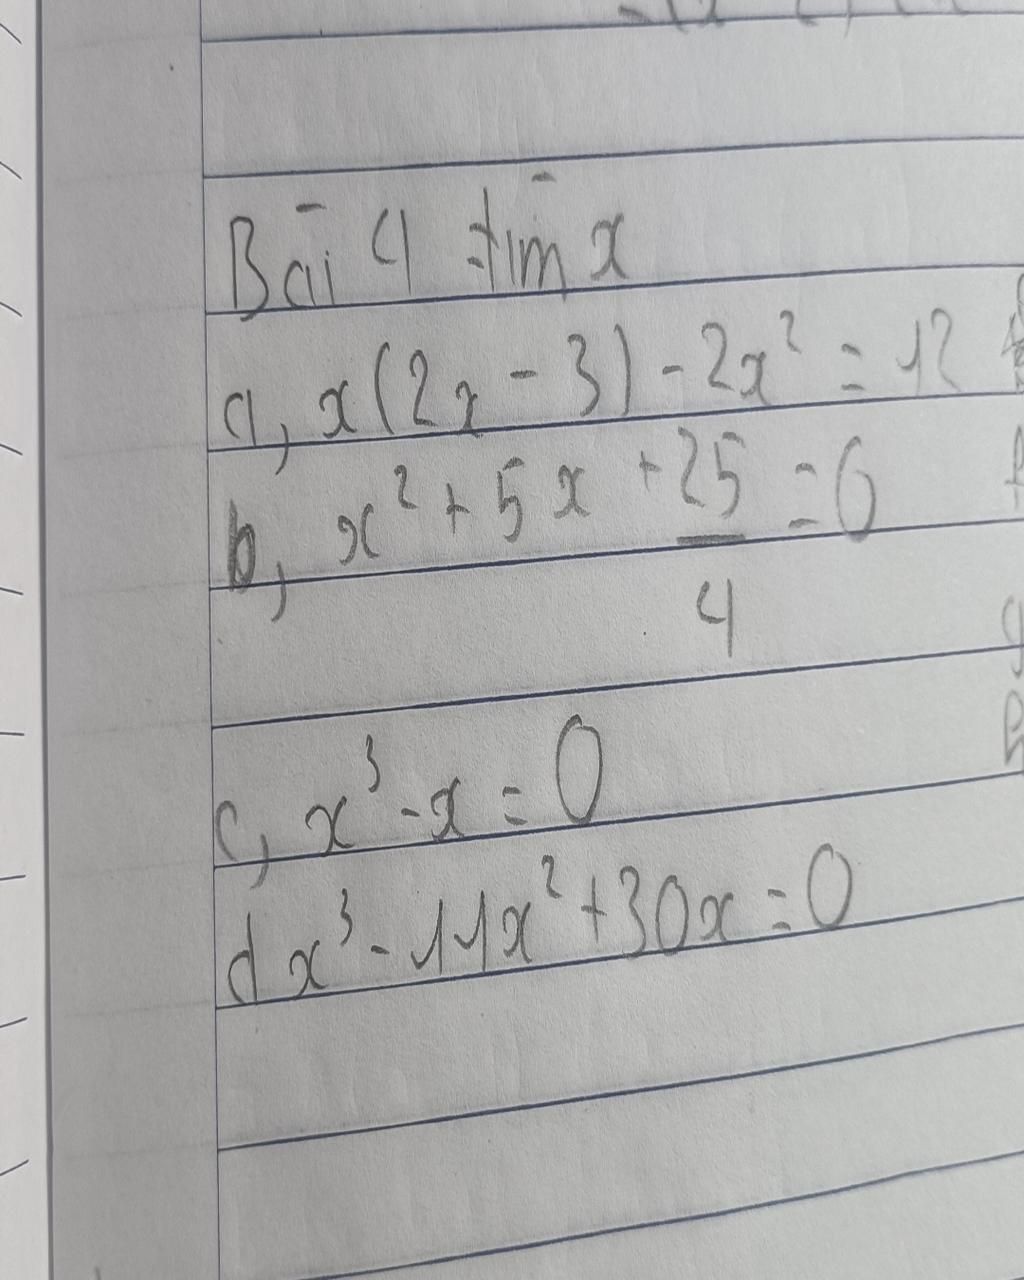 Bài 4 tìm x
a, x(2x - 3) - 2x² = 12
b, x² + 5x + 25/4 = 0
c, x³ - x = 0
d x³ - 11x² + 30x = 0